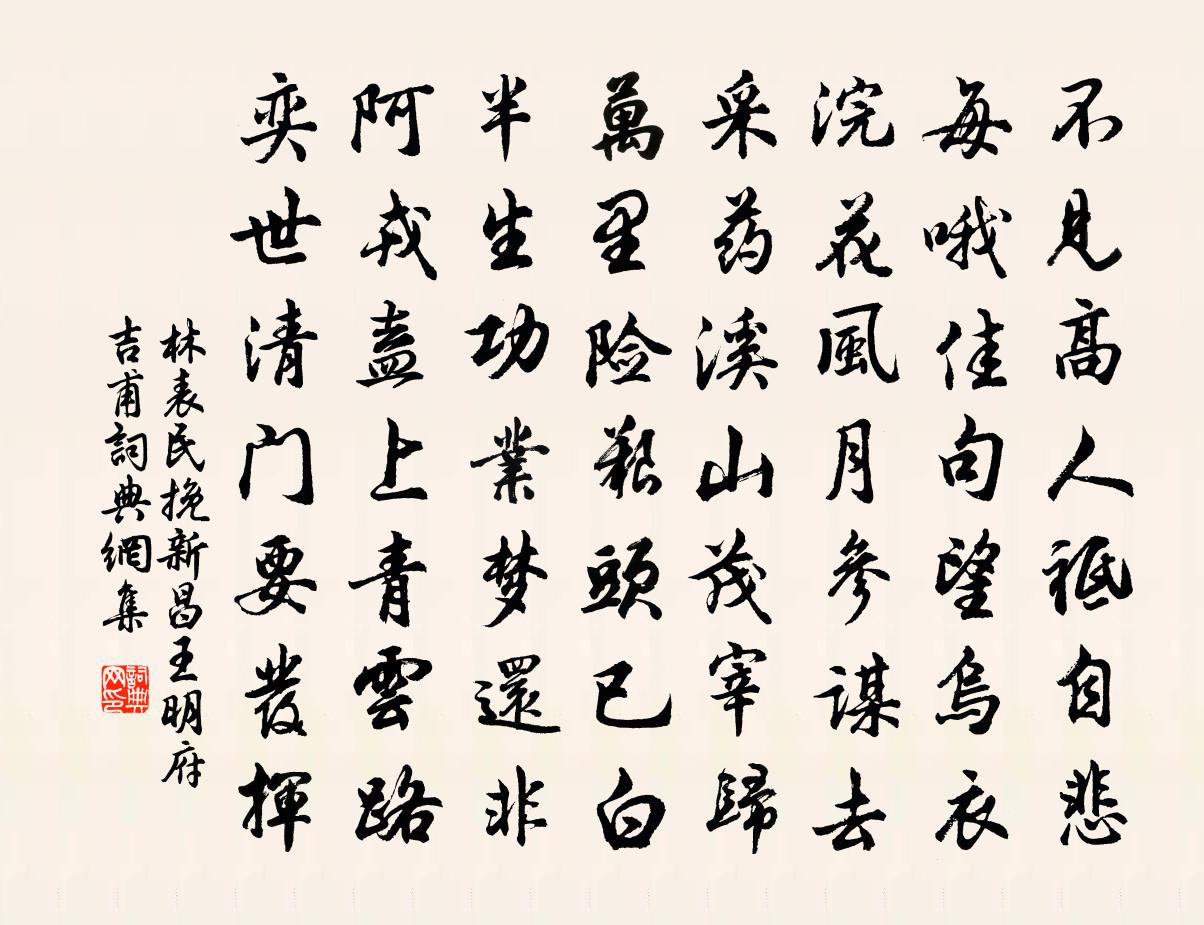 不見高人祗自悲
每哦佳句望烏衣
浣花風月參谋去
采药溪山茂宰歸
萬里险艱頭已白
半生功業梦還非
阿戎盍上青雲路
奕世清门要發揮
林表民挽新昌王明府
吉甫詞典網集
詞典
网印